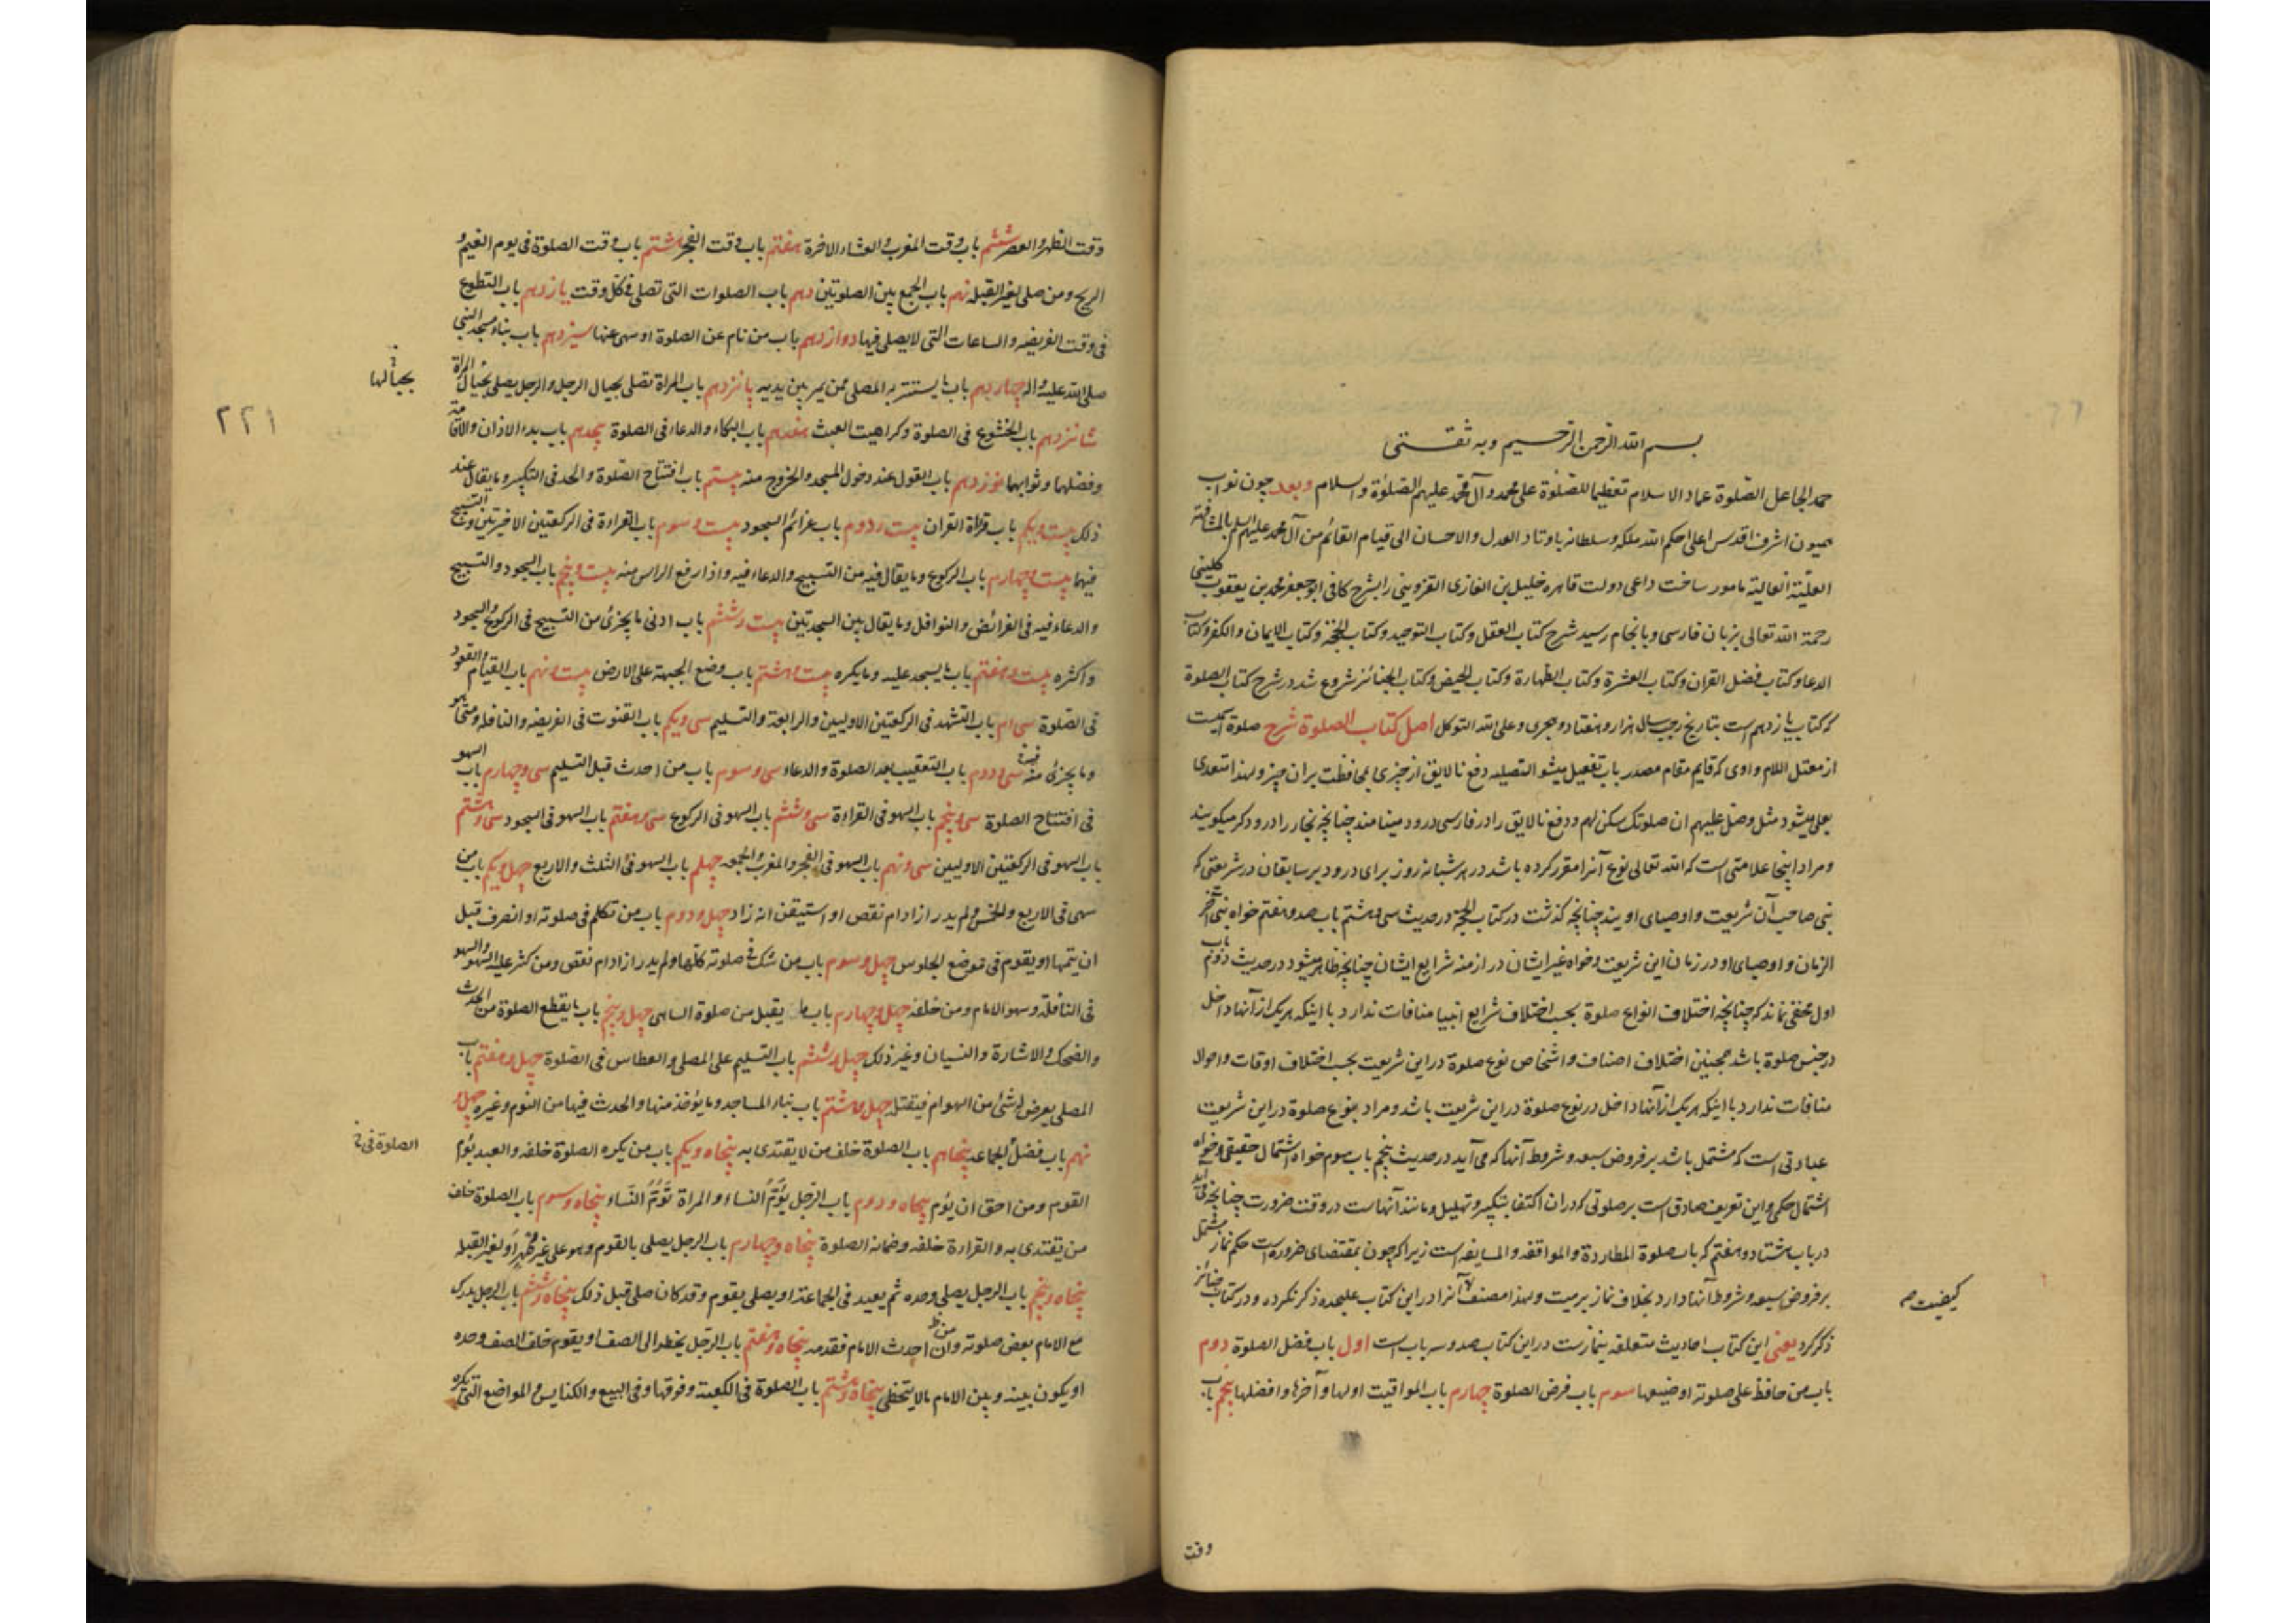 بسم الله الرحمن الرحیم وبه ثقتی
حمد الجاعل الصلوة عماد الاسلام تعظیما للصلوة علی محمد وآل محمد علیهم الصلوة والسلام وبعد چون نواب
همیون اشرف اقدس اعلی احکم الله ملکه وسلطانه باوتاد العدل والاحسان الی قیام القائم من آل محمد علیهم السلم بالمشافهة
العلیّة العالیة مامور ساخت داعی دولت قاهره خلیل بن الغازی القزوینی را بشرح کافی ابو جعفر محمد بن یعقوب کلینی
رحمة الله تعالی بزبان فارسی وبانجام رسید شرح کتاب العقل وکتاب التوحید وکتاب الحجّة وکتاب الایمان والکفر وکتاب
الدعا وکتاب فضل القران وکتاب العشرة وکتاب الطهارة وکتاب الحیض وکتاب الجنائز شروع شد در شرح کتاب الصلوة
که کتاب یازدهم است بتاریخ رجب سال هزار وهفتاد ودو هجری وعلی الله التوکل اصل کتاب الصلوة شرح صلوة اسمیت
از معتل اللام واوی که قایم مقام مصدر باب تفعیل میشود التصلیه دفع نالایق از چیزی بمحافظت بران چیز ولهذا متعدی
بعلی میشود مثل وصل علیهم ان صلوتک سکن لهم ودفع نالایق را در فارسی درود مینامند چنانچه نجار را درودکر میکویند
ومراد اینجا علامتی است که الله تعالی نوع آنرا مقرر کرده باشد در هر شبانه روز برای درود بر سابقان در شریعتی که
نبی صاحب آن شریعت واوصیای اویند چنانچه کذشت در کتاب الحجة در حدیث سی وهشتم باب صد وهفتم خواه نبی آخر
الزمان واوصیای او در زمان این شریعت وخواه غیر ایشان در ازمنه شرایع ایشان چنانچه ظاهر میشود در حدیث دوم باب
اول مخفی نماند که چنانچه اختلاف انواع صلوة بحسب اختلاف شرایع انبیا منافات ندارد با اینکه هریک از آنها داخل
در جنس صلوة باشد همچنین اختلاف اصناف واشخاص نوع صلوة در این شریعت بحسب اختلاف اوقات واحوال
منافات ندارد با اینکه هریک از آنها داخل در نوع صلوة در این شریعت باشد ومراد بنوع صلوة در این شریعت
عبادتی است که مشتمل باشد بر فروض سبعه وشروط آنها که می آید در حدیث پنجم باب سوم خواه اشتمال حقیقی وخواه
اشتمال حکمی واین تعریف صادق است بر صلوتی که دران اکتفا بتکبیر وتهلیل ومانند آنهاست در وقت ضرورت چنانچه می آید
در باب هشتاد وهفتم که باب صلوة المطاردة والمواقفه والمسایفه است زیرا که چون بمقتضای ضرورة است حکم نماز مشتمل
بر فروض سبعه وشروط آنها دارد بخلاف نماز بر میت ولهذا مصنف آنرا در این کتاب علیحده ذکر نکرده ودر کتاب جنائز
ذکر کرد یعنی این کتاب احادیث متعلقه بنمازست در این کتاب صد وسه باب است اول باب فضل الصلوة دوم
باب من حافظ علی صلوته او ضیعها سوم باب فرض الصلوة چهارم باب المواقیت اولها وآخرها وافضلها پنجم باب
کیفیت
وقت
وقت الظهر والعصر ششم باب وقت المغرب والعشاء الاخرة هفتم باب وقت الفجر هشتم باب وقت الصلوة فی یوم الغیم و
الریح ومن صلی لغیر القبله نهم باب الجمع بین الصلوتین دهم باب الصلوات التی تصلی فی کل وقت یازدهم باب التطوع
فی وقت الفریضه والساعات التی لا یصلی فیها دوازدهم باب من نام عن الصلوة او سهی عنها سیزدهم باب بناء مسجد النبی
صلی الله علیه واله چهاردهم باب ما یستتر به المصلی ممن یمر بین یدیه پانزدهم باب المراة تصلی بحیال الرجل والرجل یصلی بحیال المراة
بحیالها
۲۲۱
شانزدهم باب الخشوع فی الصلوة وکراهیت العبث هفدهم باب البکاء والدعاء فی الصلوة هجدهم باب بدء الاذان والاقامة
وفضلهما وثوابهما نوزدهم باب القول عند دخول المسجد والخروج منه بیستم باب افتتاح الصلوة والحد فی التکبیر وما یقال عند
ذلک بیست ویکم باب قراة القران بیست ودوم باب عزائم السجود بیست وسوم باب القراءة فی الرکعتین الاخیرتین والتسبیح
فیهما بیست وچهارم باب الرکوع وما یقال فیه من التسبیح والدعاء فیه واذا رفع الراس منه بیست وپنجم باب السجود والتسبیح
والدعاء فیه فی الفرائض والنوافل وما یقال بین السجدتین بیست وششم باب ادنی ما یجزئ من التسبیح فی الرکوع والسجود
واکثره بیست وهفتم باب ما یسجد علیه وما یکره بیست وهشتم باب وضع الجبهة علی الارض بیست ونهم باب القیام والقعود
فی الصلوة سی ام باب التشهد فی الرکعتین الاولیین والرابعة والتسلیم سی ویکم باب القنوت فی الفریضه والنافله ومتی هو
وما یجزئ منه فیه سی ودوم باب التعقیب بعد الصلوة والدعاء سی وسوم باب من احدث قبل التسلیم سی وچهارم باب السهو
فی افتتاح الصلوة سی وپنجم باب السهو فی القراءة سی وششم باب السهو فی الرکوع سی وهفتم باب السهو فی السجود سی وهشتم
باب السهو فی الرکعتین الاولیین سی ونهم باب السهو فی الفجر والمغرب والجمعه چهلم باب السهو فی الثلث والاربع چهل ویکم باب من
سهی فی الاربع والخمس ولم یدر ازاد ام نقص او استیقن انه زاد چهل ودوم باب من تکلم فی صلوته او انصرف قبل
ان یتمها او یقوم فی موضع الجلوس چهل وسوم باب من شک فی صلوته کلها ولم یدر ازاد ام نقص ومن کثر علیه السهو والسهو
فی النافلة وسهو الامام ومن خلفه چهل وچهارم باب ما یقبل من صلوة الساهی چهل وپنجم باب ما یقطع الصلوة من الحدث
والضحک والاشارة والنسیان وغیر ذلک چهل وششم باب التسلیم علی المصلی والعطاس فی الصلوة چهل وهفتم باب
المصلی یعرض له شئ من الهوام فیقتله چهل وهشتم باب بناء المساجد وما یؤخذ منها والحدث فیها من النوم وغیره چهل و
نهم باب فضل الجماعه پنجاهم باب الصلوة خلف من لا یقتدی به پنجاه ویکم باب من یکره الصلوة خلفه والعبد یؤم
الصلوة فی
القوم ومن احق ان یؤم پنجاه ودوم باب الرجل یؤمّ النساء والمراة تؤمّ النساء پنجاه وسوم باب الصلوة خلف
من یقتدی به والقراءة خلفه وضمانه الصلوة پنجاه وچهارم باب الرجل یصلی بالقوم وهو علی غیر طهر او لغیر القبله
پنجاه وپنجم باب الرجل یصلی وحده ثم یعید فی الجماعة او یصلی بقوم وقد کان صلی قبل ذلک پنجاه وششم باب الرجل یدرک
مع الامام بعض صلوته وان احدث الامام فقدمه پنجاه وهفتم باب الرجل یخطو الی الصف او یقوم خلف الصف وحده
او یکون بینه وبین الامام ما لا یتخطی پنجاه وهشتم باب الصلوة فی الکعبة وفوقها وفی البیع والکنایس والمواضع التی یکره